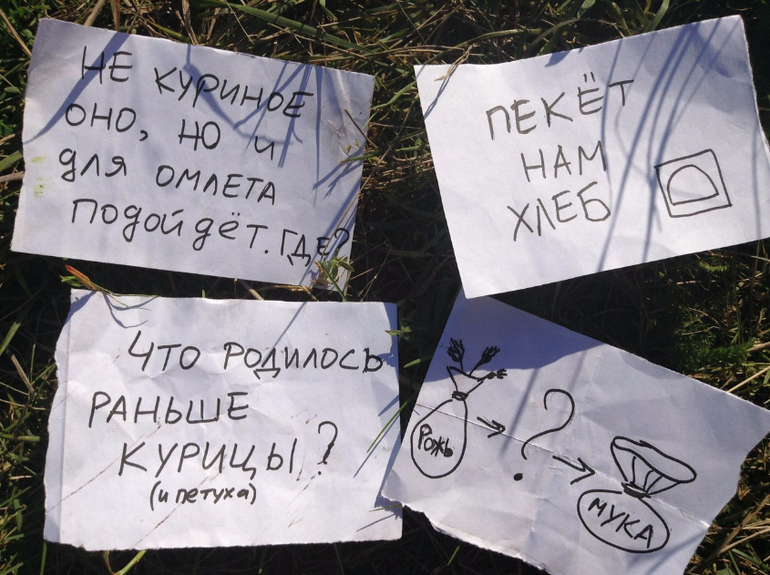 НЕ КУРИНОЕ
ОНО, НО И
ДЛЯ ОМЛЕТА
ПОДОЙДЁТ. ГДЕ?
ПЕКЁТ
НАМ
ХЛЕБ
ЧТО РОДИЛОСЬ
РАНЬШЕ
КУРИЦЫ?
(И ПЕТУХА)
РОЖЬ
?
МУКА